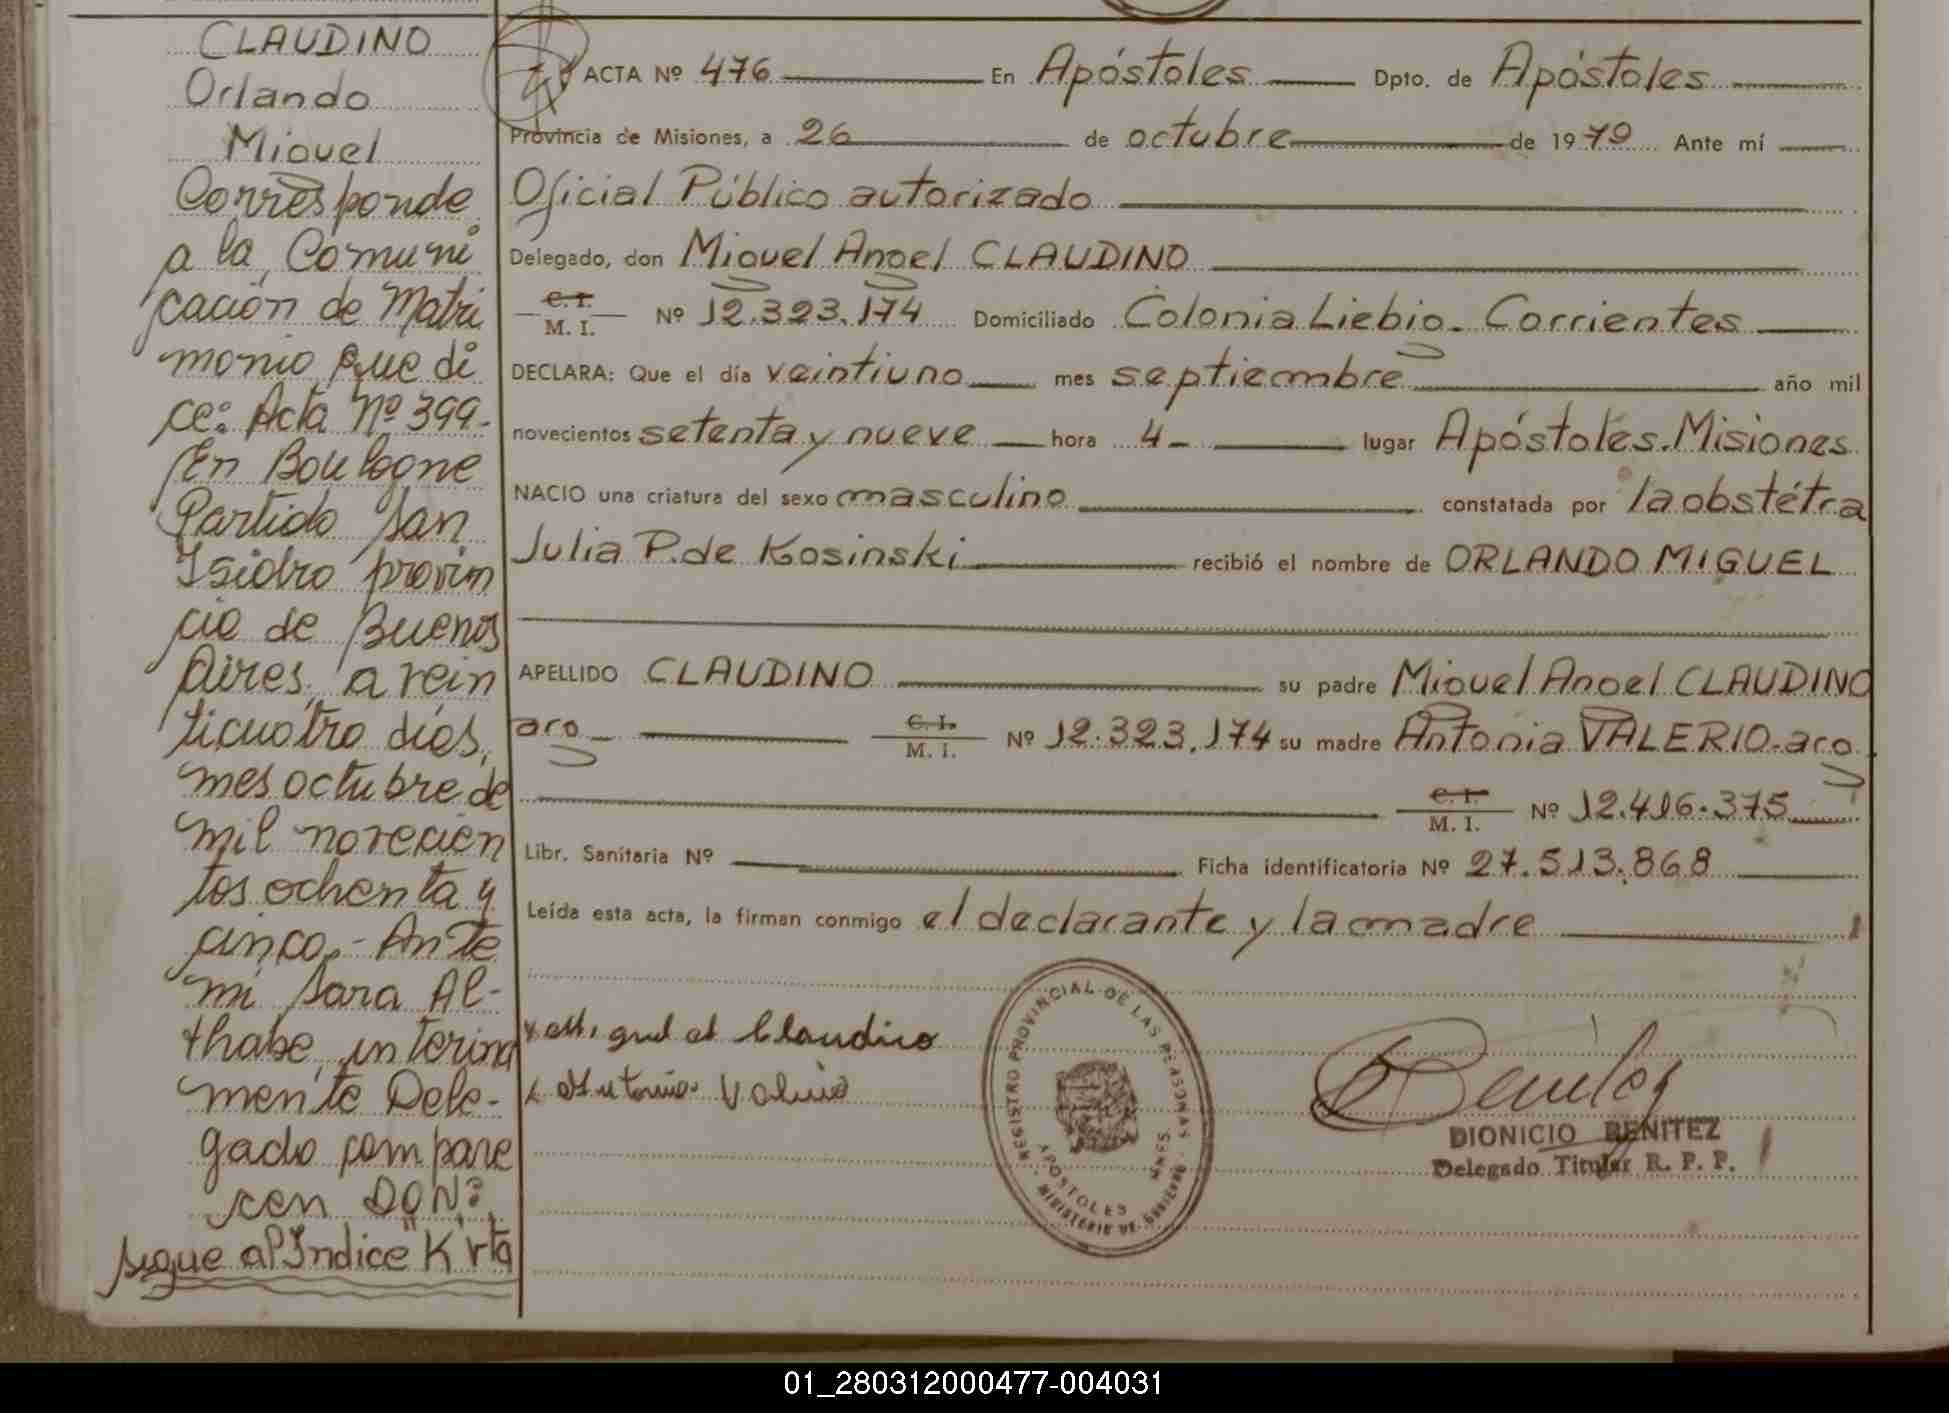 CLAUDINO
Orlando
Miguel
Corresponde
a la Comuni
cación de Matri
monio que di
ce: Acta Nº 399-
En Boulogne
Partido San
Isidro provin
cia de Buenos
Aires, a vein
ticuatro días,
mes octubre de
mil novecien
tos ochenta y
cinco.- Ante
mi Sara Al-
thabe, interina
mente Dele-
gado compare
cen DON:
sigue al Indice "K" vta
ACTA Nº 476 En Apóstoles Dpto. de Apóstoles
Provincia de Misiones, a 26 de octubre de 1979 Ante mí
Oficial Público autorizado
Delegado, don Miguel Angel CLAUDINO
C. I.
M. I. Nº 12.323.174 Domiciliado Colonia Liebig. Corrientes
DECLARA: Que el día veintiuno mes septiembre año mil
novecientos setenta y nueve hora 4- lugar Apóstoles. Misiones
NACIO una criatura del sexo masculino constatada por la obstétra
Julia P. de Kosinski recibió el nombre de ORLANDO MIGUEL
APELLIDO CLAUDINO su padre Miguel Angel CLAUDINO
arg C. I.
M. I. Nº 12.323.174 su madre Antonia VALERIO-arg.
C. I.
M. I. Nº 12.416.375
Libr. Sanitaria Nº Ficha identificatoria Nº 27.513.868
Leída esta acta, la firman conmigo el declarante y la madre
x Miguel A Claudino
x Antonia Valerio
REGISTRO PROVINCIAL DE LAS PERSONAS
APOSTOLES MNES.
MINISTERIO DE GOBIERNO
Benitez
DIONICIO BENITEZ
Delegado Titular R. P. P.
01_280312000477-004031